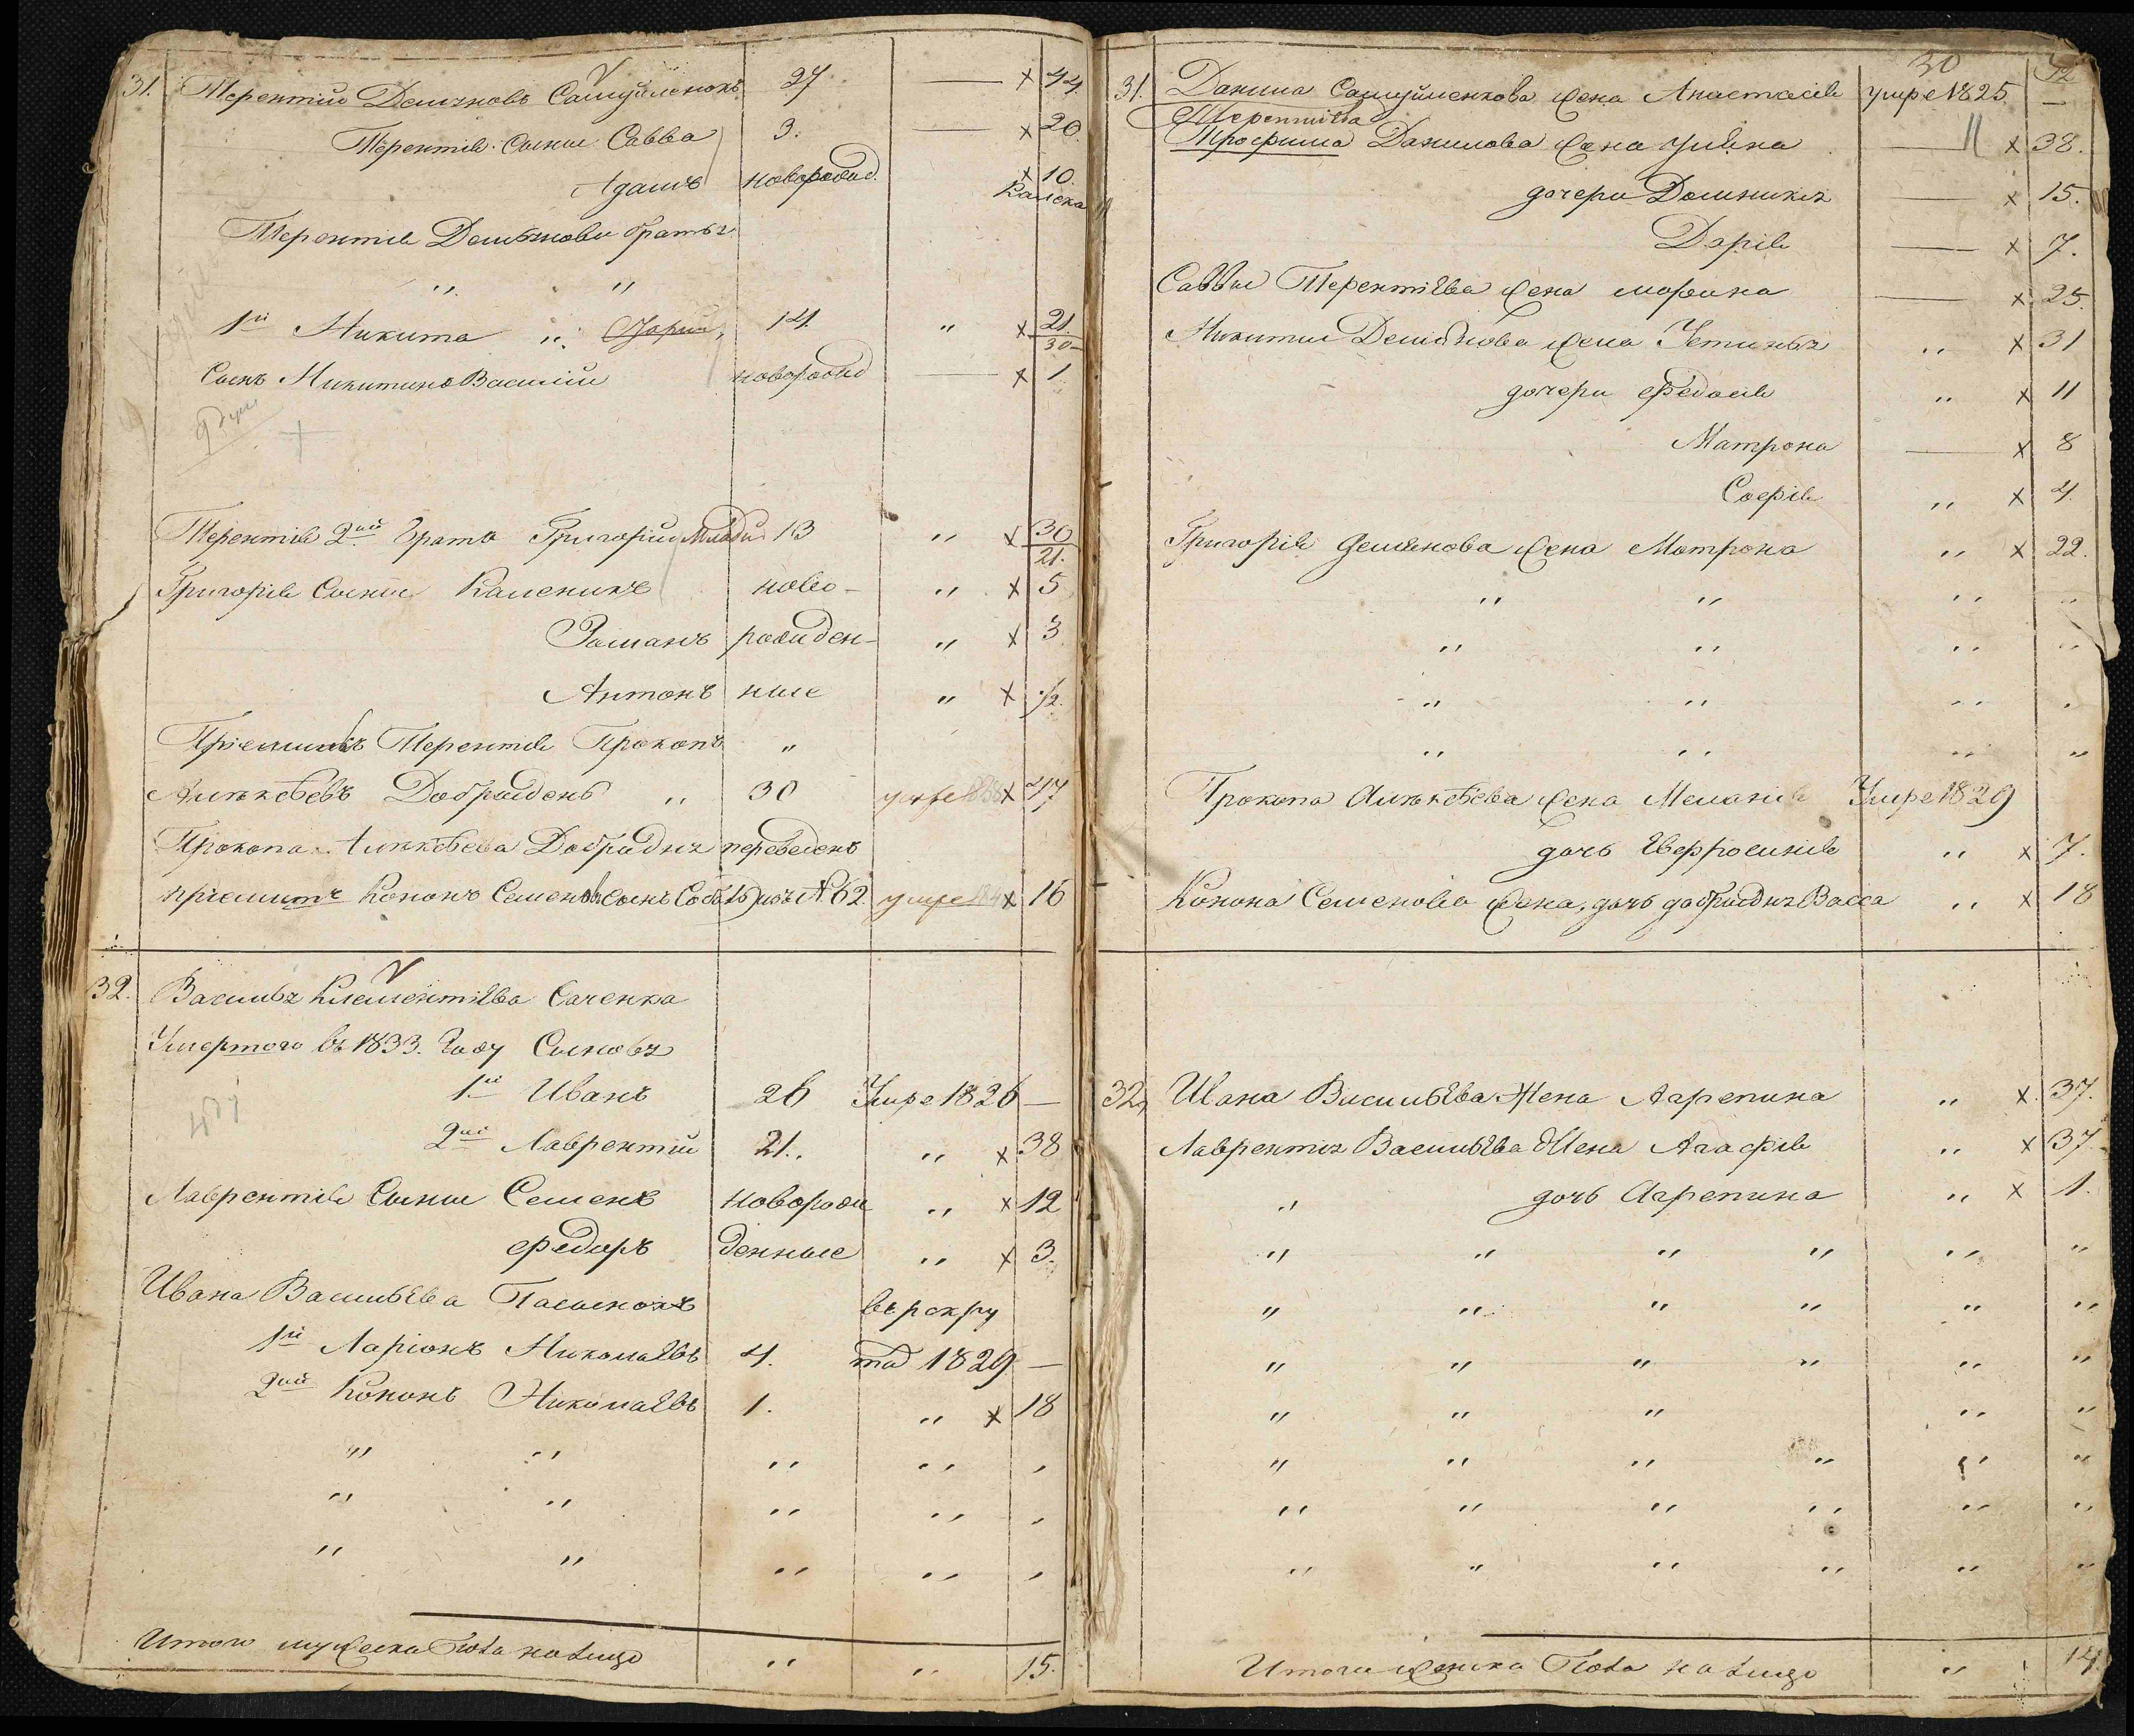 31. Терентій Демяновъ Самуйленокъ 27 — x 44
Терентія Сыны Савва 3. — x 20
Адамъ новорожд. x 10.
Терентія Демьянови братья
" "
1й Никита " 14 " x 21. 30
Сынъ Никитинъ Василій новорожд — x 1
9 душ
Терентія 2ий братъ Григорий 13 " x 30 21.
Григорія Сыны Каленикъ ново- " x 5
Романъ рожден- " x 3
Антонъ ные " x 1/2.
Пріемышъ Терентія Прокопъ "
Алексѣевъ Добрыдень " 30 умре x 47
Прокопа Алексѣева Добридня переведенъ
приемишъ Кононъ Семеновъ сынъ изъ №62. умре x 16
32. Василья Клементіева Саченка
Умертого въ 1833. Году Сыновья
1й Иванъ 26 Умре 1826 —
2ий Лаврентій 21. " x 38
Лаврентія Сыны Семенъ новорож " x 12
Федоръ денные " x 3.
Ивана Васильева Пасынокъ в рекру
1й Ларіонъ Николаевъ 4. та 1829 —
2ий Кононъ Николаевъ 1. " x 18
" " " " "
" " " " "
" " " " "
Итого мужеска Пола налицо " " 15.
30
31. Данила Самуйленкова жена Анастасія умре 1825. —
Терентіва
Трофима Данилова жена Ульяна — x 38.
дочери Домникія — x 15.
Дарія — x 7.
Саввы Терентіева жена Марина — x 25.
Никиты Демянова жена Устинья " x 31
дочери Федосія " x 11
Матрона — x 8
Софія " x 4.
Григорія Демянова жена Матрона " x 22.
" " " "
" " " "
" " " "
" " " "
Прокопа Алексѣева жена Меланія Умре 1829
дочь Евфросинія " x 7.
Конона Семенова жена, дочь добрыдня Васса " x 18
32, Ивана Васильева Жена Агрепина " x 37.
Лаврентия Васильева Жена Агафія " x 37.
" дочь Агрепина " x 1.
" " " " " "
" " " " " "
" " " " " "
" " " " "
" " " " " "
" " " " " "
" " " " " "
Итого женска Пола налицо " 14.